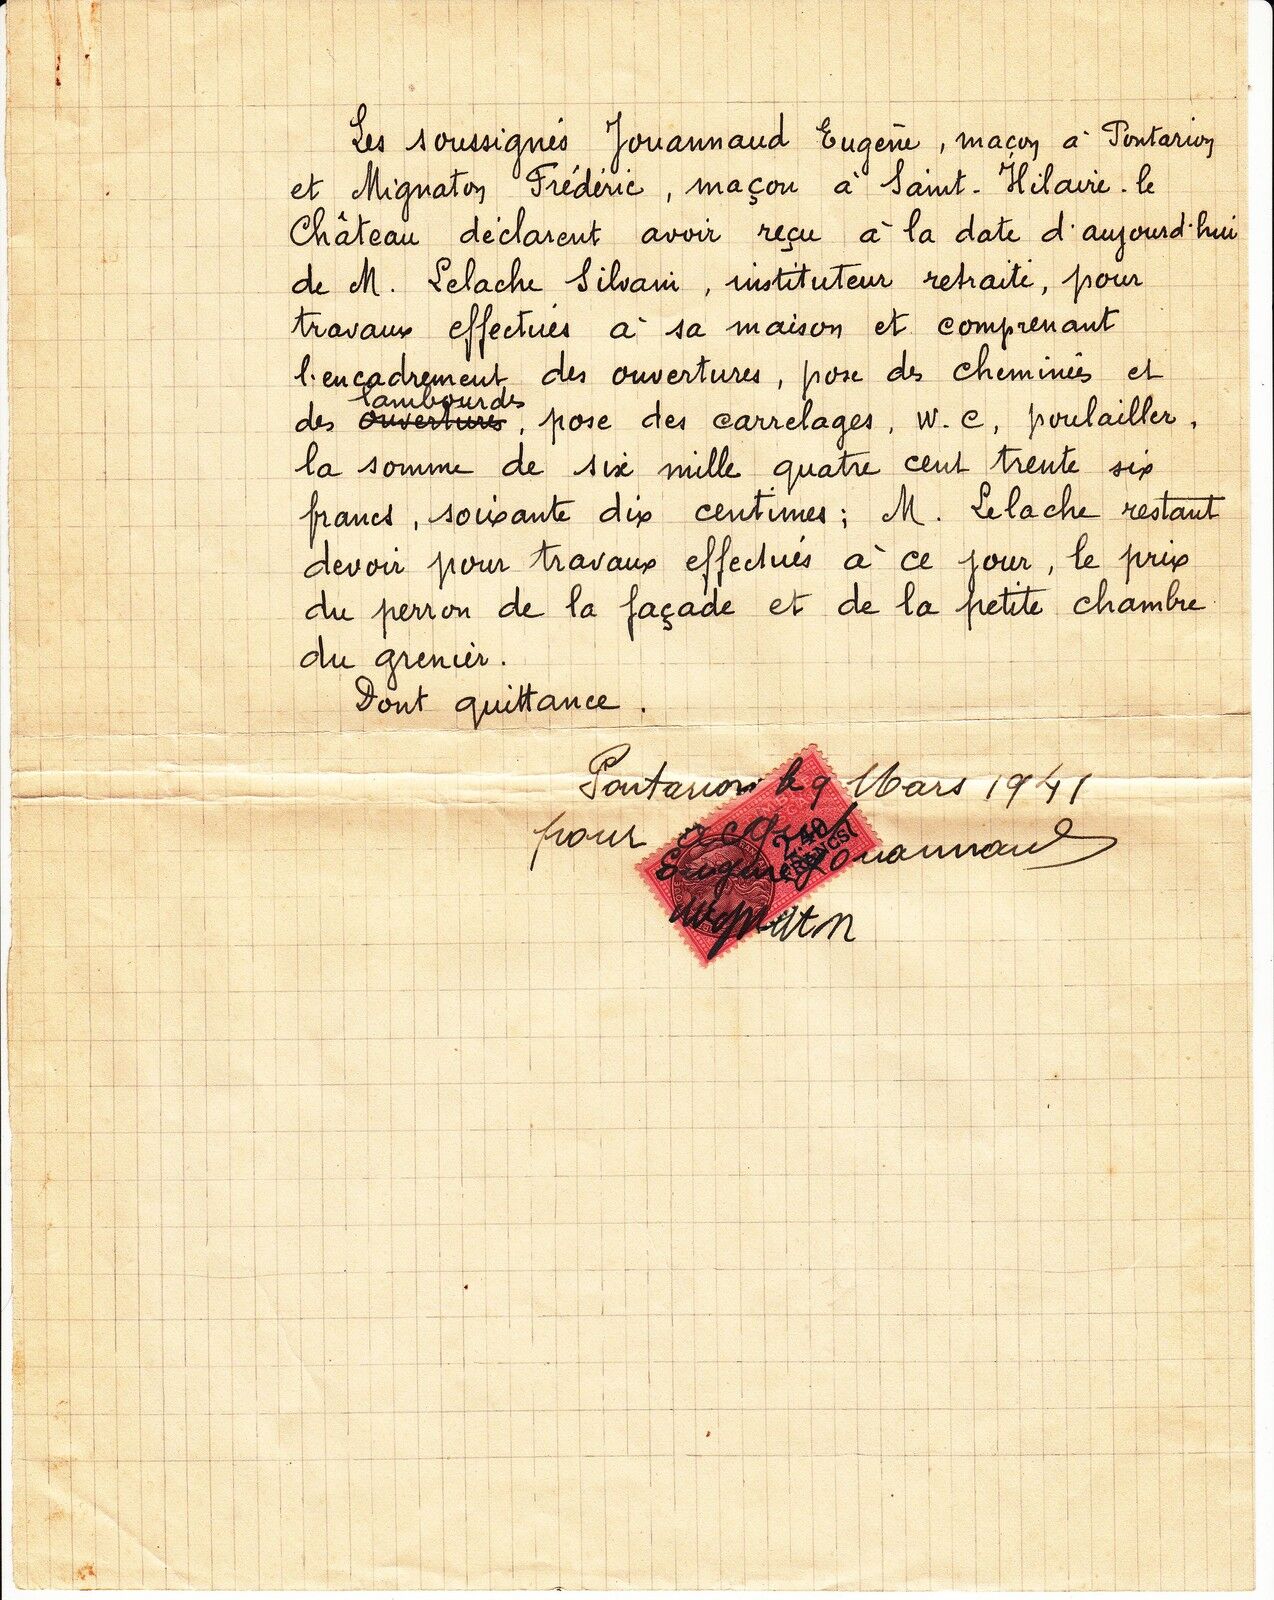 Les soussignés Jouannaud Eugène, maçon à Pontarion
et Mignaton Frédéric, maçon à Saint-Hilaire-le
Château déclarent avoir reçu à la date d'aujourd'hui
de M. Lelache Silvain, instituteur retraité, pour
travaux effectués à sa maison et comprenant
l'encadrement des ouvertures, pose des cheminées et
lambourdes
des ouvertures, pose des carrelages, W.C, poulailler,
la somme de six mille quatre cent trente six
francs, soixante dix centimes; M. Lelache restant
devoir pour travaux effectués à ce jour, le prix
du perron de la façade et de la petite chambre
du grenier.
Dont quittance.
Pontarion le 9 Mars 1941
pour acquit
2F.40
FRANCS
Eugène Jouannaud
Mignaton